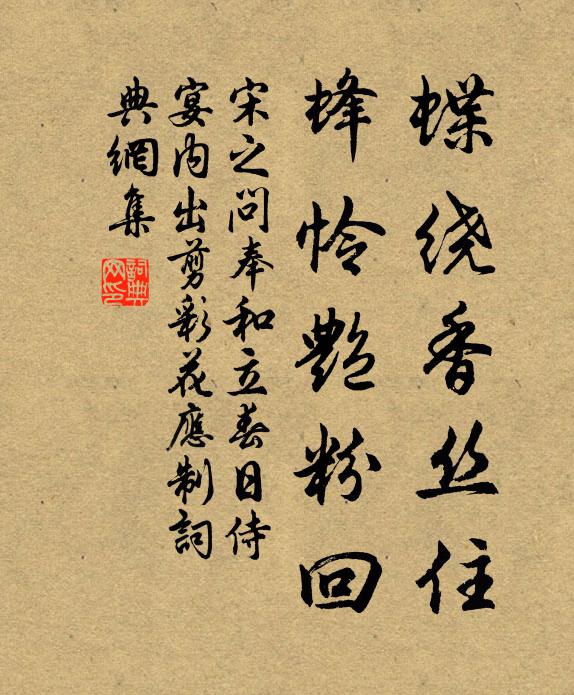 蝶绕香丝住
蜂怜艳粉回
宋之问奉和立春日侍
宴内出剪彩花應制詞
典網集
詞典網印